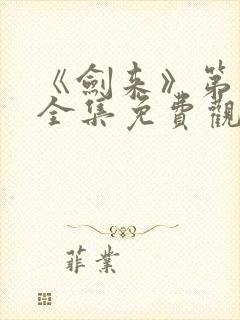 《劍来》第
全集免費觀
菲業